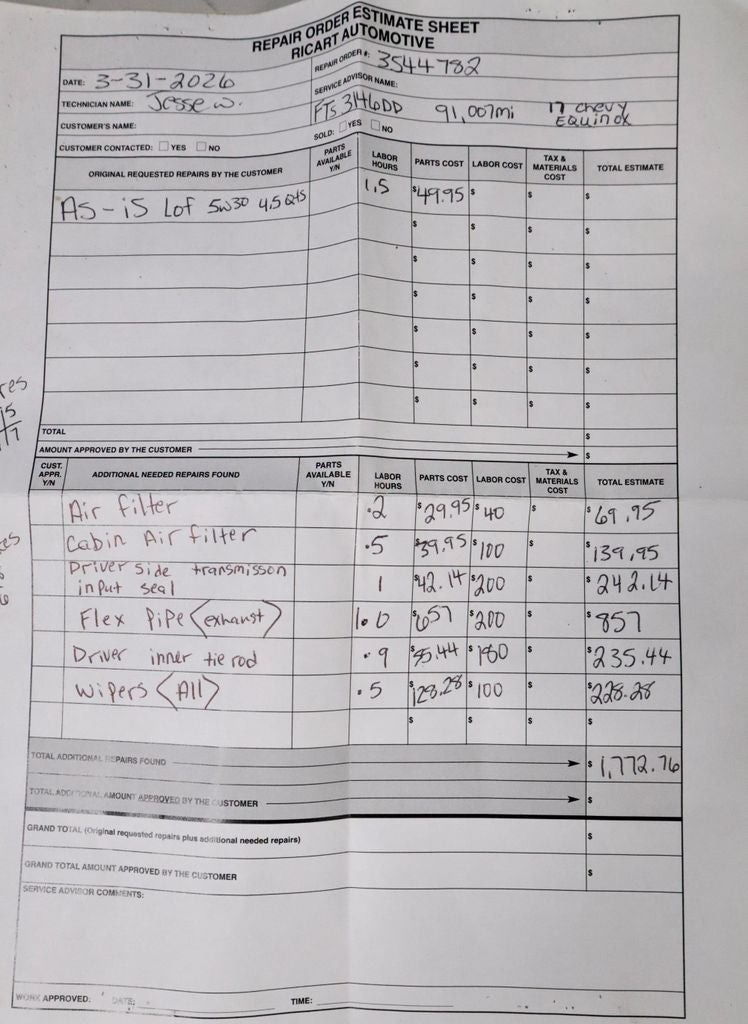 REPAIR ORDER ESTIMATE SHEET
RICART AUTOMOTIVE
DATE: 3-31-2026
REPAIR ORDER #: 3544782
TECHNICIAN NAME: Jesse W.
SERVICE ADVISOR NAME:
FTS 3146DD 91,007mi 17 chevy EQuinox
CUSTOMER'S NAME:
SOLD: YES NO
CUSTOMER CONTACTED: YES NO
ORIGINAL REQUESTED REPAIRS BY THE CUSTOMER PARTS AVAILABLE Y/N LABOR HOURS PARTS COST LABOR COST TAX & MATERIALS COST TOTAL ESTIMATE
AS-iS Lof 5w30 4.5 Qts 1.5 $49.95 $ $ $
$ $ $ $
$ $ $ $
$ $ $ $
$ $ $ $
$ $ $ $
$ $ $ $
TOTAL $
AMOUNT APPROVED BY THE CUSTOMER $
CUST. APPR. Y/N ADDITIONAL NEEDED REPAIRS FOUND PARTS AVAILABLE Y/N LABOR HOURS PARTS COST LABOR COST TAX & MATERIALS COST TOTAL ESTIMATE
Air filter .2 $29.95 $40 $ $69.95
Cabin Air filter .5 $39.95 $100 $ $139.95
Driver side transmisson input seal 1 $42.14 $200 $ $242.14
Flex Pipe (exhaust) 1.0 $657 $200 $ $857
Driver inner tie rod .9 $55.44 $180 $ $235.44
Wipers (All) .5 $128.28 $100 $ $228.28
$ $ $ $
TOTAL ADDITIONAL REPAIRS FOUND $ 1,772.76
TOTAL ADDITIONAL AMOUNT APPROVED BY THE CUSTOMER $
GRAND TOTAL (Original requested repairs plus additional needed repairs) $
GRAND TOTAL AMOUNT APPROVED BY THE CUSTOMER $
SERVICE ADVISOR COMMENTS:
WORK APPROVED: DATE: TIME: